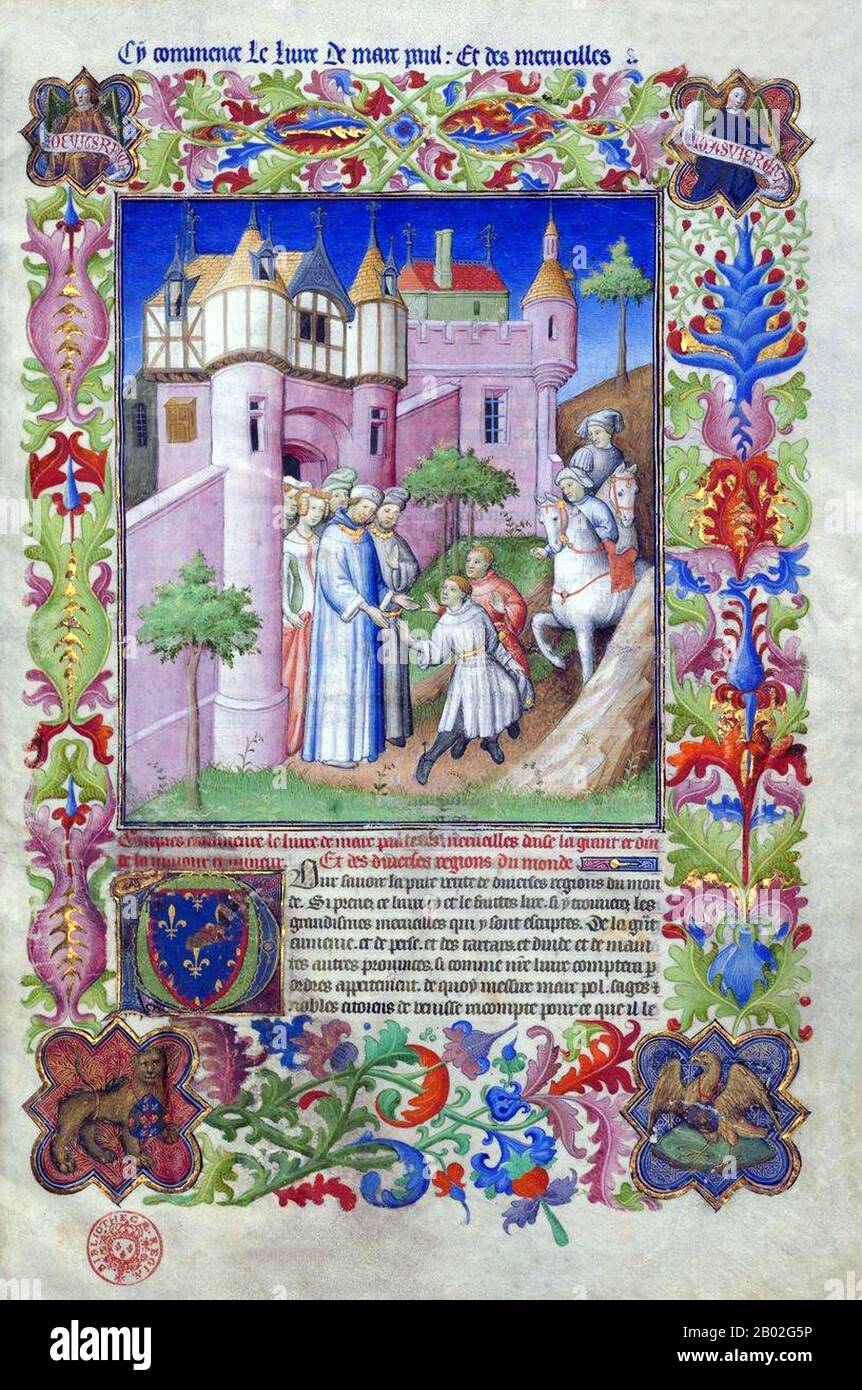 Cy commence le livre de marc paul : Et des merueilles
Cy apres commence le liure de marc paul des merueilles daise la grant et din
de la maiour et mineur
Et des diuerses regions du monde
Pour sauoir la pure verite de diuerses regions du mon
de. Si prenez ce liure et le faittes lire. si y trouuerez les
grandismes merueilles qui y sont escriptes. De la grãt
armenie. et de perse. et des tartars. et dinde. et de main
tes autres prouinces. si comme nr̃e liure comptera p
ordres appertement. de quoy messire marc pol. sages et
nobles citoiens de venisse racompte pour ce que il le
BIBLIOTHECÆ REGIÆ
alamy
Image ID: 2B02G5P
www.alamy.com